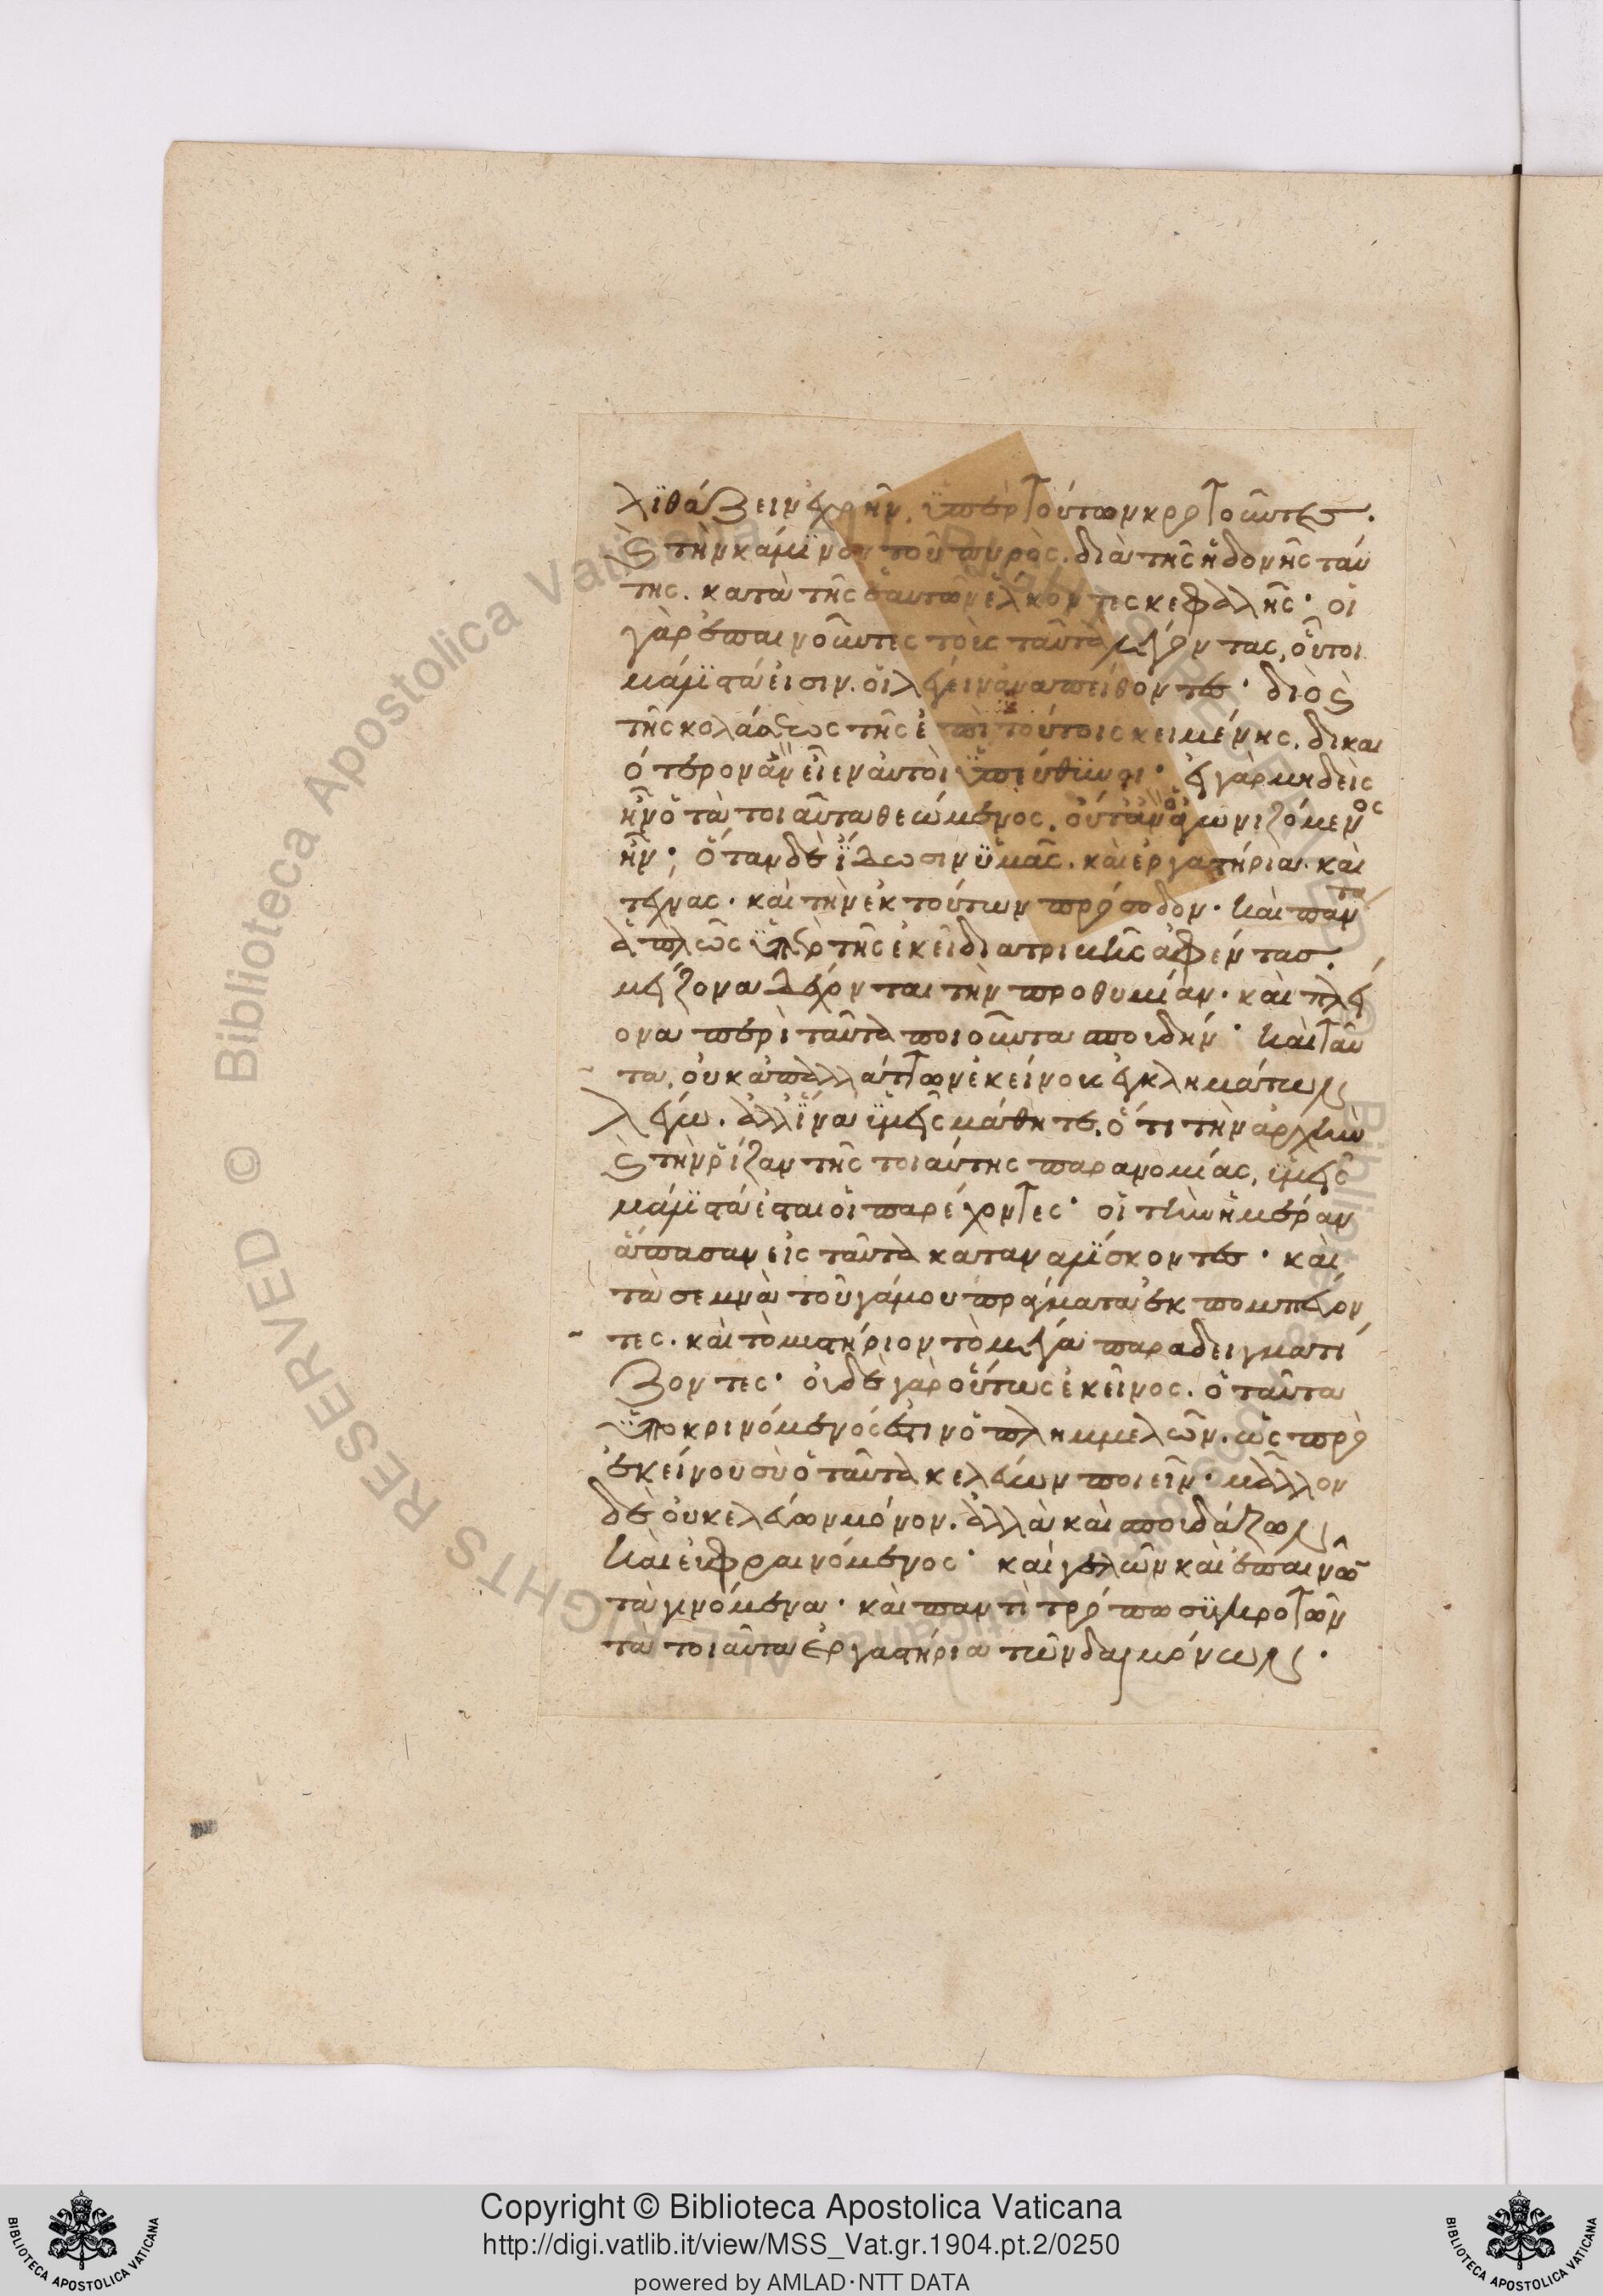 λϊθάζειν ἐχρῆν. ὑπὲρ τούτων κροτοῦντες.
καὶ τὴν κάμϊνον τοῦ πυρὸς. διὰ τῆς ἡδονῆς ταύ
της. κατὰ τῆς ἑαυτῶν ἕλκοντες κεφαλῆς· οἱ
γὰρ ἐπαινοῦντες τοὺς ταῦτα λέγοντας, οὗτοι
μάλϊστά εἰσιν. οἱ λέγειν ἀναπείθοντες· διὸ καὶ
τῆς κολάσεως τῆς ἐπὶ τούτοις κειμένης. δικαι
ότερον ἂν εἶεν αὐτοὶ ὑπεύθϋνοι· εἰ γὰρ μηδεὶς
ἦν ὁ τὰ τοιαῦτα θεώμενος. οὐτ' ἂν ὁ ἀγωνιζόμενος
ἦν· ὅταν δὲ ἴδωσιν ὑμᾶς. καὶ ἐργαστήρια. καὶ
τέχνας. καὶ τὴν ἐκ τούτων πρόσοδον. καὶ πάντα
ἁπλῶς ὑπὲρ τῆς ἐκεῖ διατριβῆς ἀφέντας.
μείζονα δέχονται τὴν προθυμίαν. καὶ πλεί
ονα περὶ ταῦτα ποιοῦνται σπουδήν· καὶ ταῦ
τα, οὐκ ἀπαλλάττων ἐκείνους ἐγκλημάτων
λέγω. ἀλλ' ἵνα ὑμεῖς μάθητε, ὅτι τὴν ἀρχὴν
καὶ τὴν ῥίζαν τῆς τοιαύτης παρανομίας, ὑμεῖς
μάλϊστά ἐσται οἱ παρέχοντες· οἱ τὴν ἡμέραν
ἅπασαν εἰς ταῦτα καταναλϊσκοντες. καὶ
τὰ σεμνὰ τοῦ γάμου πράγματα ἐκπομπεύον
τες. καὶ τὸ μυστήριον τὸ μέγα παραδειγματί
ζοντες· οὐδὲ γὰρ οὕτως ἐκεῖνος. ὁ ταῦτα
ὑποκρινόμενός ἐστιν ὁ πλημμελῶν. ὡς πρὸ
ἐκείνου σὺ ὁ ταῦτα κελεύων ποιεῖν. μᾶλλον
δὲ οὐ κελεύων μόνον. ἀλλὰ καὶ σπουδάζων
καὶ εὐφραινόμενος· καὶ γελῶν καὶ ἐπαινῶν
τὰ γινόμενα. καὶ παντὶ τρόπω συγκροτῶν
τὰ τοιαῦτα ἐργαστήρια τῶν δαιμόνων.
Copyright © Biblioteca Apostolica Vaticana
http://digi.vatlib.it/view/MSS_Vat.gr.1904.pt.2/0250
powered by AMLAD·NTT DATA